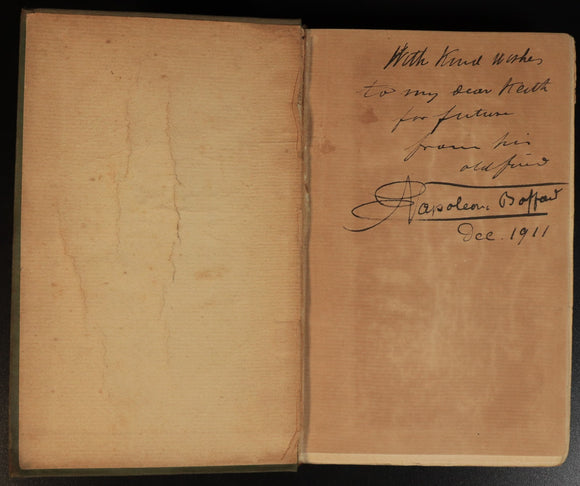 With Kind Wishes
to my dear Keith
for future
from his
old friend
Napoleon Boffard
Dec. 1911